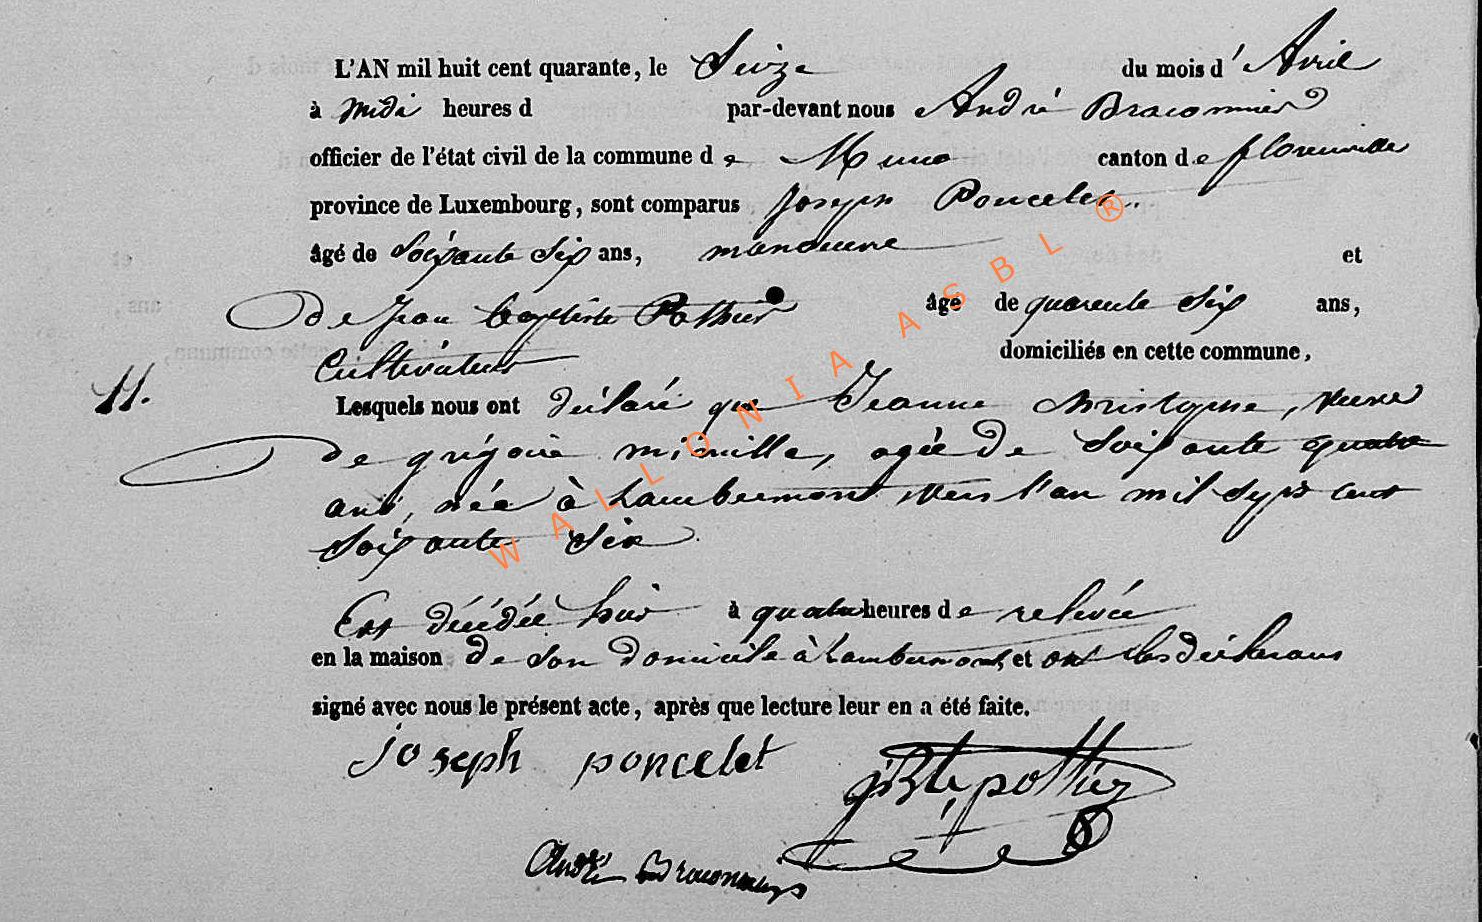 L'AN mil huit cent quarante, le Seize du mois d' Avril
à midi heures d par-devant nous André Braconnier
officier de l'état civil de la commune de Muno canton de florenville
province de Luxembourg, sont comparus joseph Poncelet
âgé de Soixante Six ans, manoeuvre et
de Jean baptiste Pothier âgé de quarente Six ans,
Cultivateur domiciliés en cette commune,
11.
Lesquels nous ont déclaré que Jeanne christophe, veuve
de grégoire minille, agée de Soixante quatre
ans, née à Lambermont vers l'an mil Sept cent
Soixante Six
Est décédée hier à quatre heures de relevée
en la maison de Son Domicile à Lambermont, et ont les déclarans
signé avec nous le présent acte, après que lecture leur en a été faite.
joseph poncelet
jBte pothier
André Braconnier
WALLONIA ASBL ®